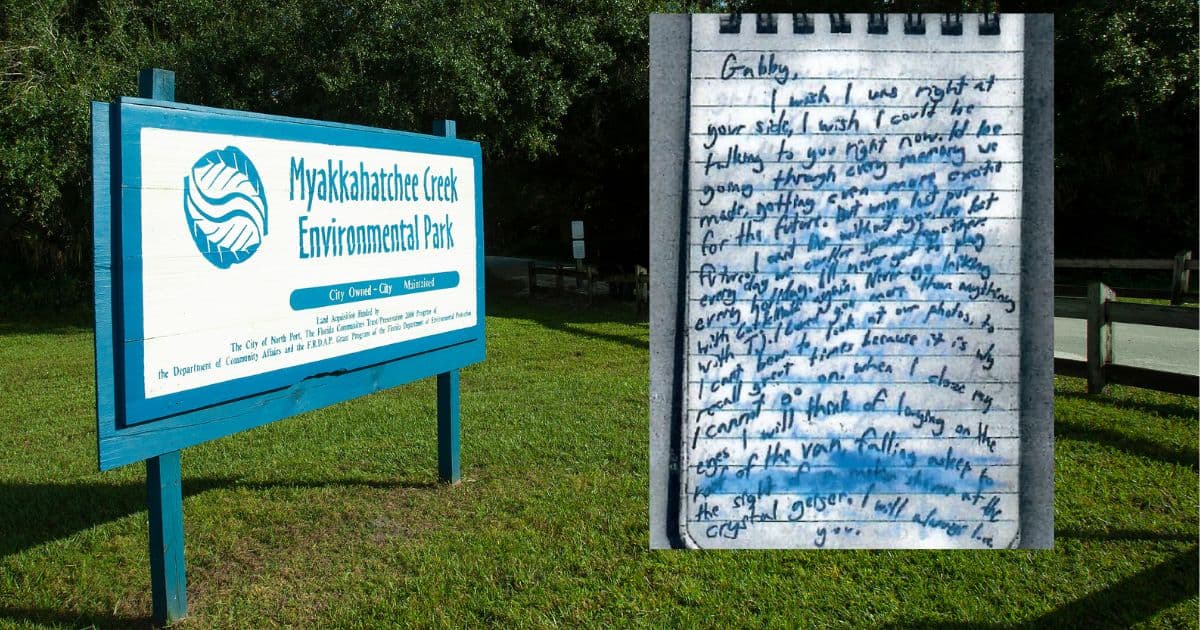 Myakkahatchee Creek
Environmental Park
City Owned - City Maintained
Land Acquisition Funded by
The City of North Port, The Florida Communities Trust/Preservation 2000 Program of
the Department of Community Affairs and the F.R.D.A.P. Grant Program of the Florida Department of Environmental Protection
Gabby,
I wish I was right at
your side, I wish I could be
talking to you right now. Id be
going through every memory we
made, getting even more excited
for the future. But we've lost our
I cant without you. I've lost
every day
every holiday, Ill never get to play
with again. Never go hiking
with TJ. I loved you more than anything
I cant bear to look at our photos, to
recall great times because it is why
I cannot go on. When I close my
eyes I will think of laughing on the
roof of the van, falling asleep to
the sight of at the
crystal geiser. I will always love
you.